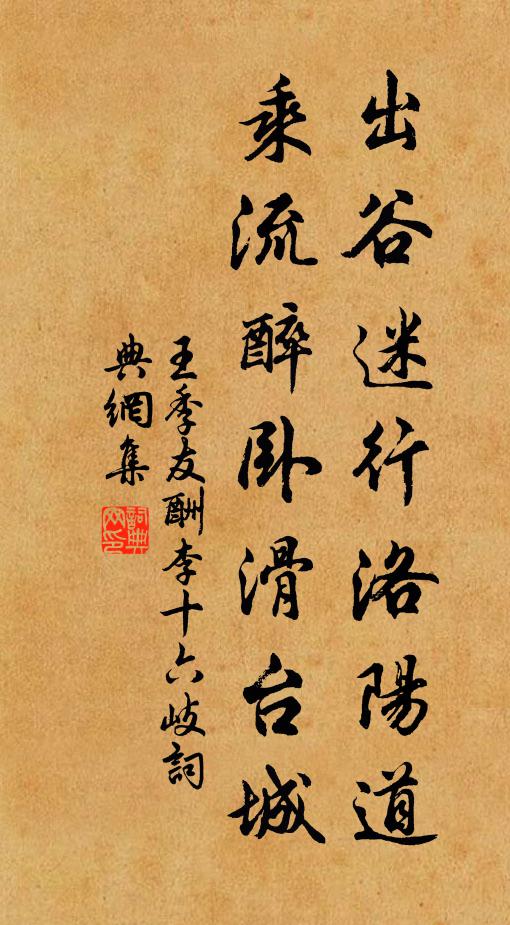 出谷迷行洛陽道
乘流醉卧滑台城
王季友酬李十六岐詞
典網集
詞典網